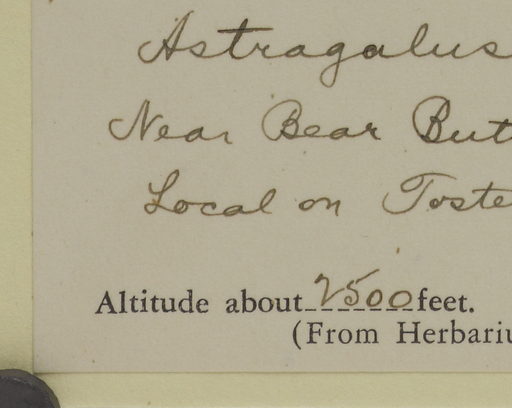 Astragalus
Near Bear But
Local on Toste
Altitude about 2500 feet.
(From Herbariu